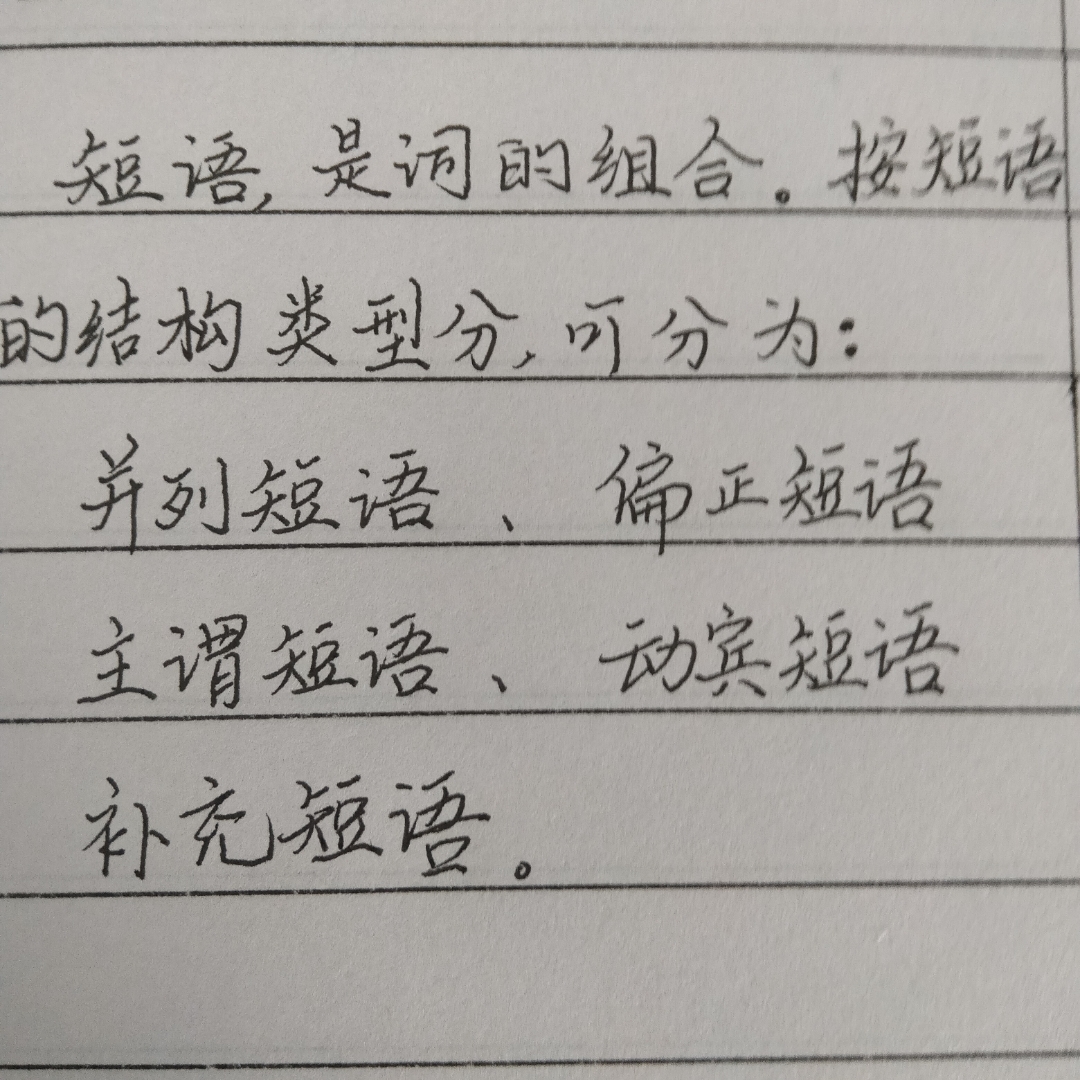 短语,是词的组合。按短语
的结构类型分,可分为:
并列短语、偏正短语
主谓短语、动宾短语
补充短语。